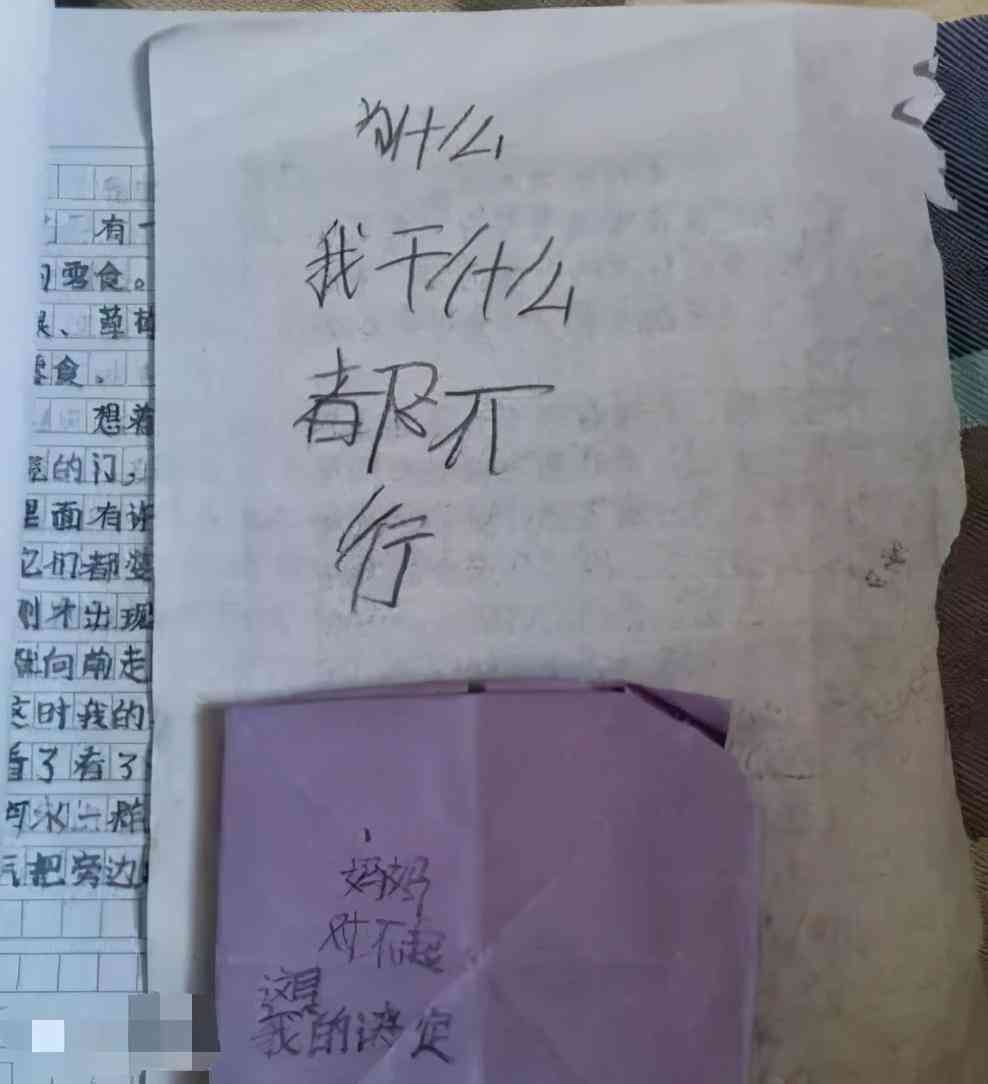 为什么
我干什么
都不
行
妈妈
对不起
这是
我的决定
有一
零食。
、草莓
零食。
想着
的门,
里面有许
它们都
刚才出现
就向前走
这时我的
看了看了
把旁边